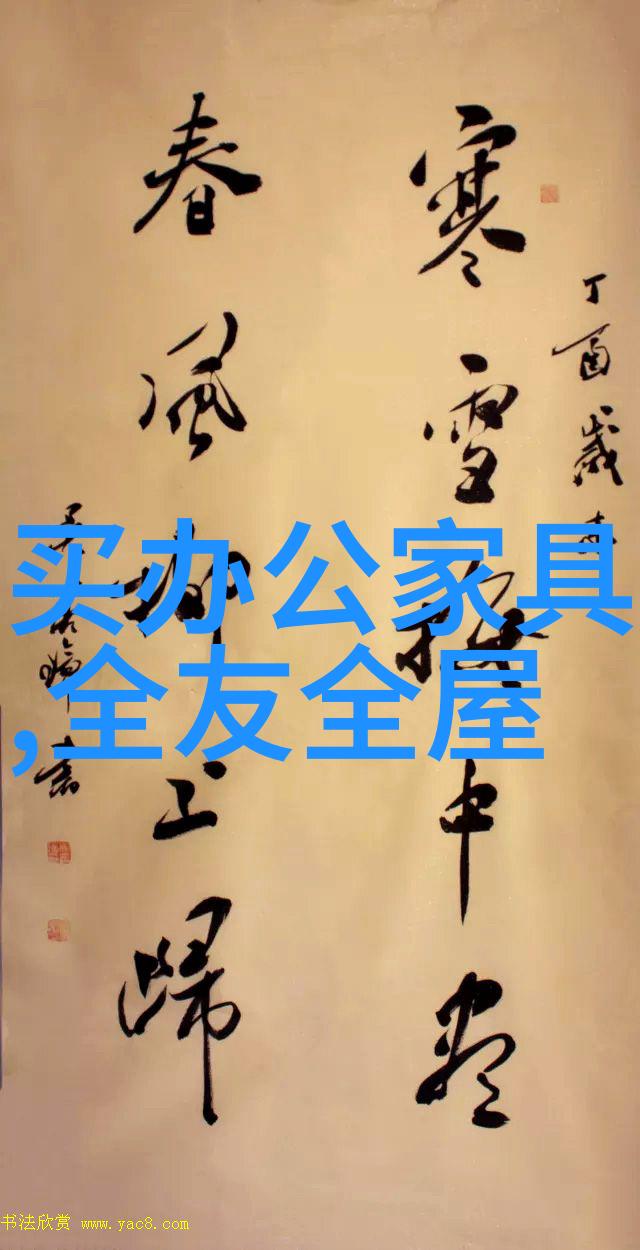 买办公家具
,全友全屋
丁酉歲
寒雪梅中尽
春風柳上歸
书法欣赏 www.yac8.com